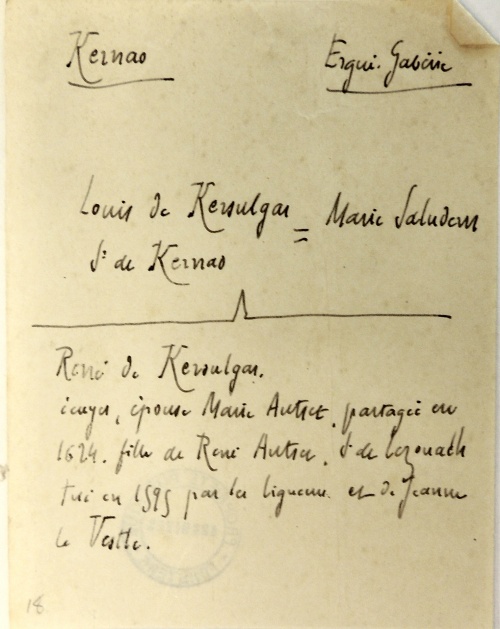 Kernao Ergué-Gabéric
Louis de Kersulgar = Marie Saludern
Sr de Kernao
René de Kersulgar.
écuyer, épouse Marie Autret, partagée en
1624. fille de René Autret, Sr de Lezouach
tué en 1595 par les ligueurs et de Jeanne
le Vestle.
18